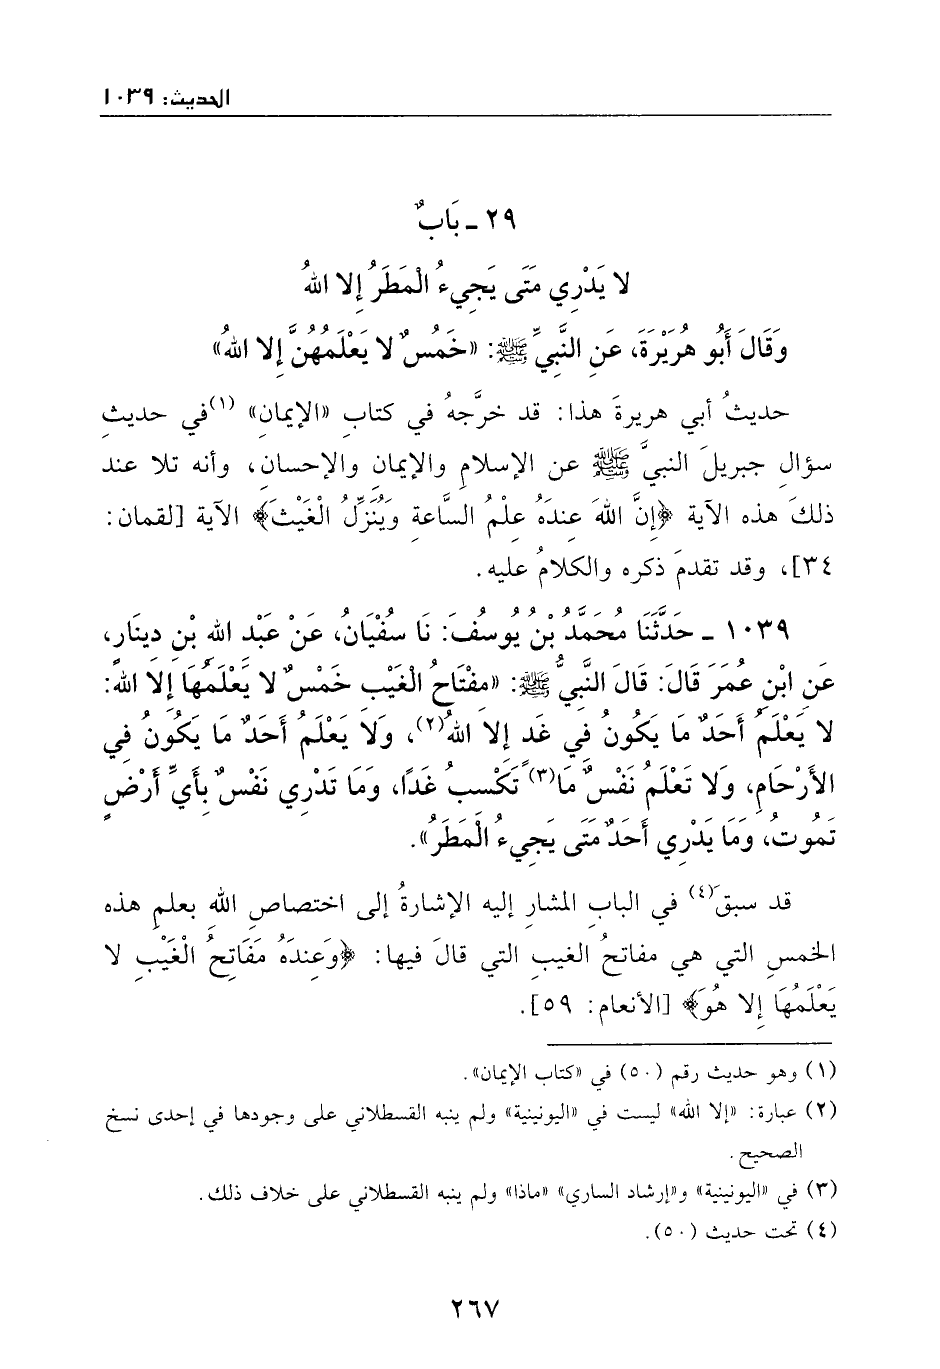 الحديث: ١٠٣٩
٢٩ ـ بَابٌ
لا يَدْرِي مَتَى يَجِيءُ الْمَطَرُ إِلا اللهُ
وَقَالَ أَبُو هُرَيْرَةَ، عَنِ النَّبِيِّ ﷺ: «خَمْسٌ لا يَعْلَمُهُنَّ إِلا اللهُ»
حديثُ أبي هريرةَ هذا: قد خرَّجهُ في كتابِ «الإيمان» (١)في حديثِ
سؤالِ جبريلَ النبيَّ ﷺ عن الإسلامِ والإيمانِ والإحسانِ، وأنه تلا عند
ذلكَ هذه الآية ﴿إِنَّ اللهَ عِندَهُ عِلْمُ السَّاعَةِ وَيُنَزِّلُ الْغَيْثَ﴾ الآية [لقمان:
٣٤]، وقد تقدمَ ذكره والكلامُ عليه.
١٠٣٩ ـ حَدَّثَنَا مُحَمَّدُ بْنُ يُوسُفَ: نَا سُفْيَانُ، عَنْ عَبْدِ اللهِ بْنِ دِينَارٍ،
عَنِ ابْنِ عُمَرَ قَالَ: قَالَ النَّبِيُّ ﷺ: «مِفْتَاحُ الْغَيْبِ خَمْسٌ لا يَعْلَمُهَا إِلا اللهُ:
لا يَعْلَمُ أَحَدٌ مَا يَكُونُ فِي غَدٍ إِلا اللهُ(٢)، وَلا يَعْلَمُ أَحَدٌ مَا يَكُونُ فِي
الأَرْحَامِ، وَلا تَعْلَمُ نَفْسٌ مَا(٣) تَكْسِبُ غَدًا، وَمَا تَدْرِي نَفْسٌ بِأَيِّ أَرْضٍ
تَمُوتُ، وَمَا يَدْرِي أَحَدٌ مَتَى يَجِيءُ الْمَطَرُ».
قد سبقَ(٤) في البابِ المشارِ إليه الإشارةُ إلى اختصاصِ اللهِ بعلمِ هذه
الخمسِ التي هي مفاتحُ الغيبِ التي قالَ فيها: ﴿وَعِندَهُ مَفَاتِحُ الْغَيْبِ لا
يَعْلَمُهَا إِلا هُوَ﴾ [الأنعام: ٥٩].
(١) وهو حديث رقم (٥٠) في «كتاب الإيمان».
(٢) عبارة: «إلا الله» ليست في «اليونينية» ولم ينبه القسطلاني على وجودها في إحدى نسخ
الصحيح.
(٣) في «اليونينية» و«إرشاد الساري» «ماذا» ولم ينبه القسطلاني على خلاف ذلك.
(٤) تحت حديث (٥٠).
٢٦٧